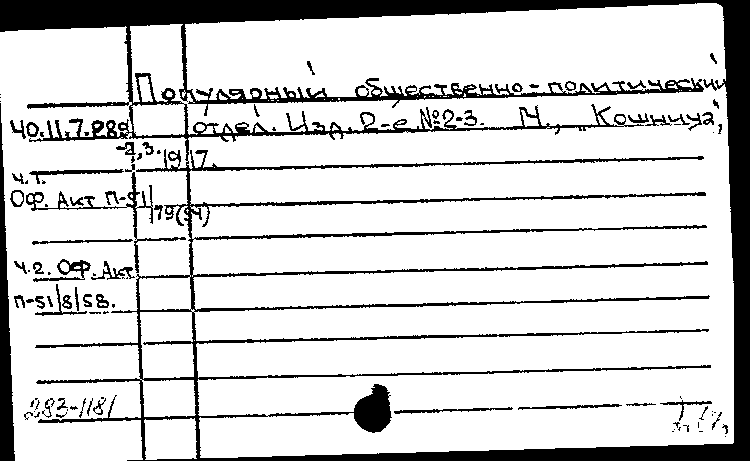 Популярный общественно-политический
40.11.7.889 отдел. Изд. 2-е №2-3. М., "Кошница",
-2,3. 1917.
Ч.1.
Оф. Акт П-51/
/79(54)
Ч.2. Оф. Акт
П-51/8/58.
283-1181